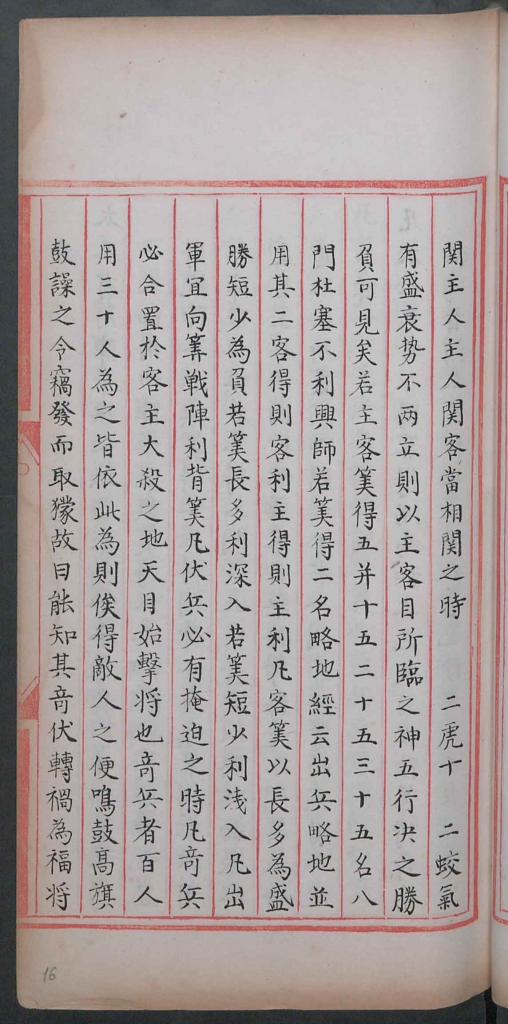 関主人主人関客當相関之時　二虎十　二蛟氣
有盛衰势不两立則以主客目所臨之神五行决之勝
負可見矣若主客筭得五并十五二十五三十五名八
門杜塞不利興師若筭得二名略地經云出兵略地並
用其二客得則客利主得則主利凡客筭以長多為盛
勝短少為負若筭長多利深入若筭短少利浅入凡出
軍宜向筭戦陣利背筭凡伏兵必有掩迫之時凡竒兵
必合置於客主大殺之地天目始擊将也竒兵者百人
用三十人為之皆依此為則俟得敵人之便鳴鼓高旗
鼓譟之令竊發而取獴故曰能知其竒伏轉禍為福将
16